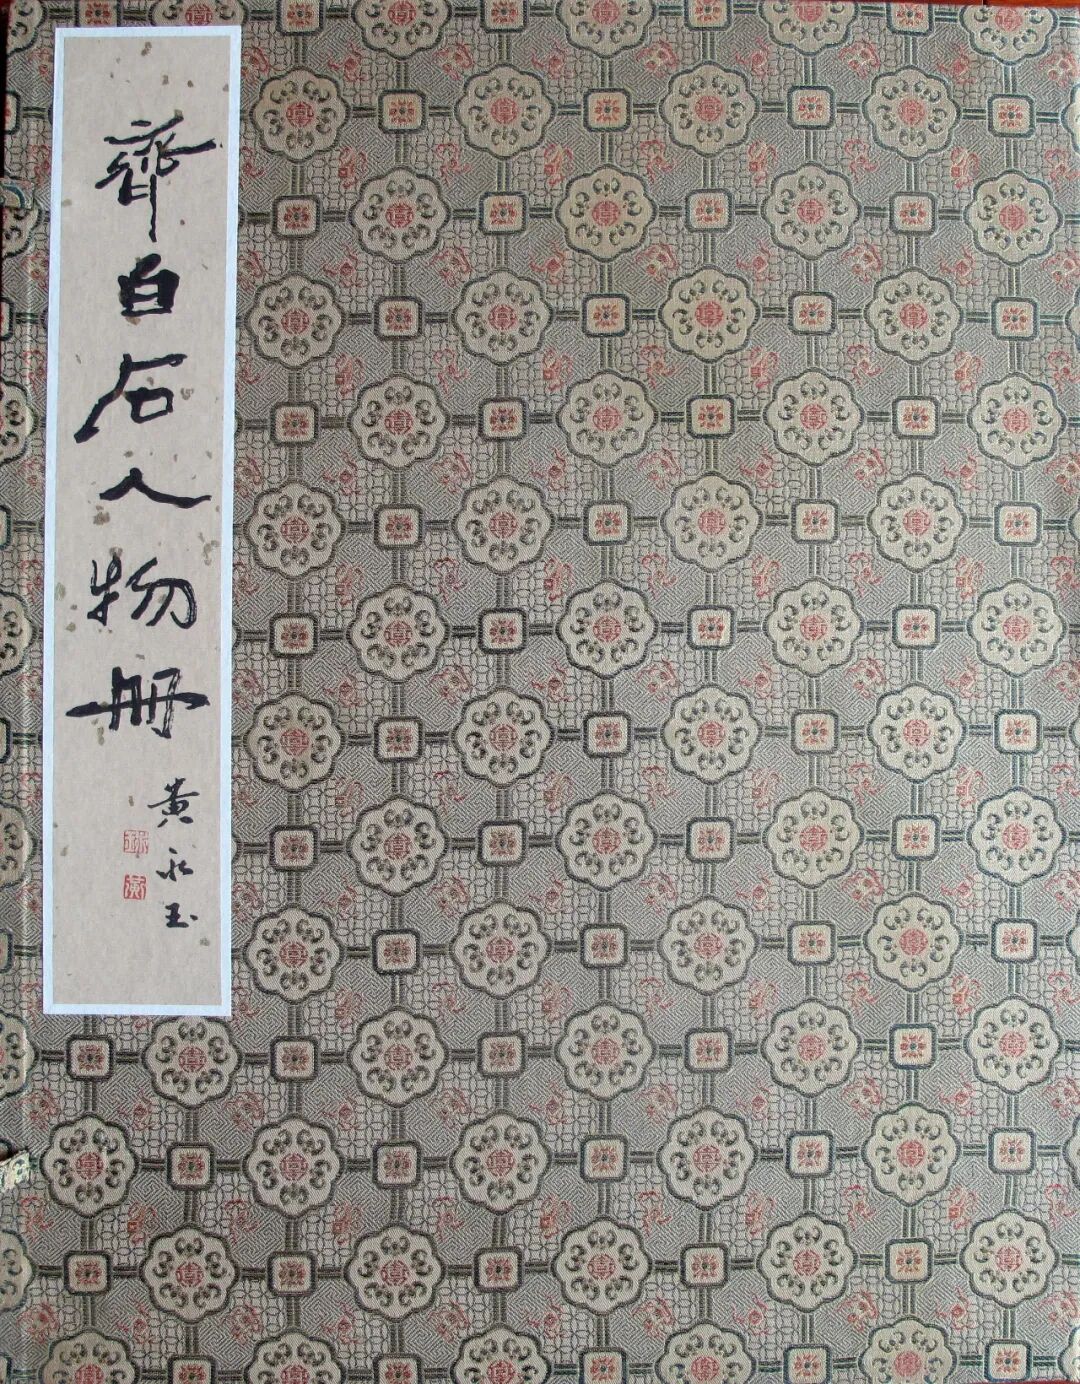 齊白石人物册
黄永玉